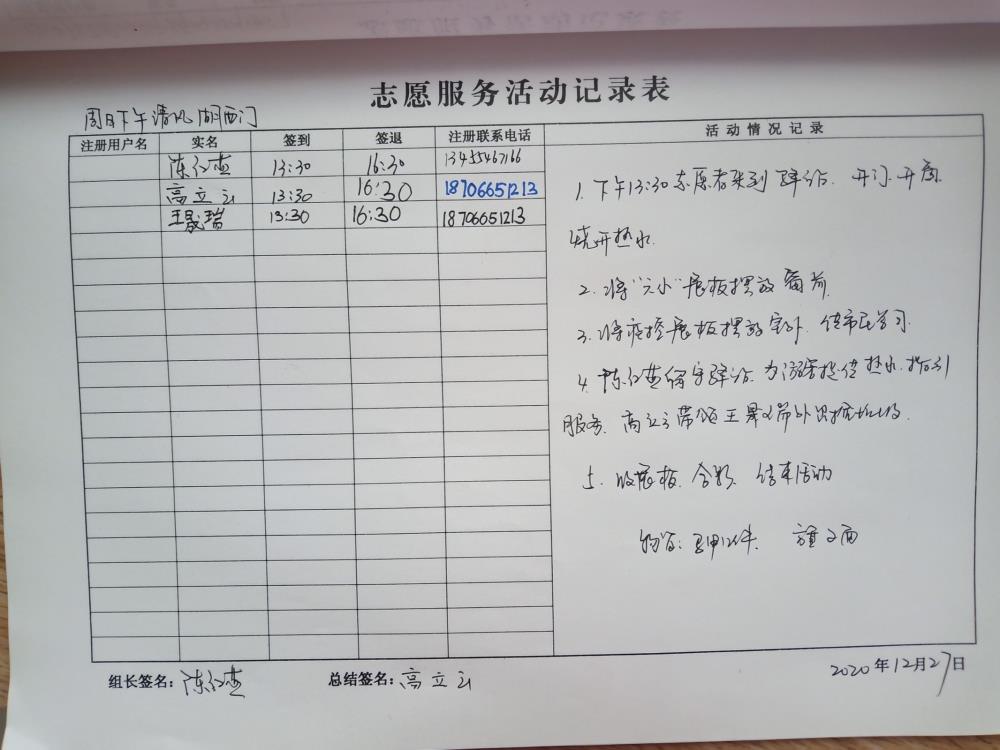 志愿服务活动记录表
周日下午清风湖西门
注册用户名 实名 签到 签退 注册联系电话 活动情况记录
陈红 13:30 16:30 13455467166
高立云 13:30 16:30 18706651213
王晟瑞 13:30 16:30 18706651213
1. 下午13:30志愿者来到驿站. 开门.开窗.
烧开热水.
2. 将"六小"展板摆放窗前.
3. 将疫控展板摆放室外. 供市民学习.
4. 陈红 留守驿站. 为游客提供热水.指引
服务. 高立云带领王晟瑞外出捡垃圾.
5. 收展板. 合影. 结束活动
物资:
组长签名: 陈红 总结签名: 高立云
2020年12月27日